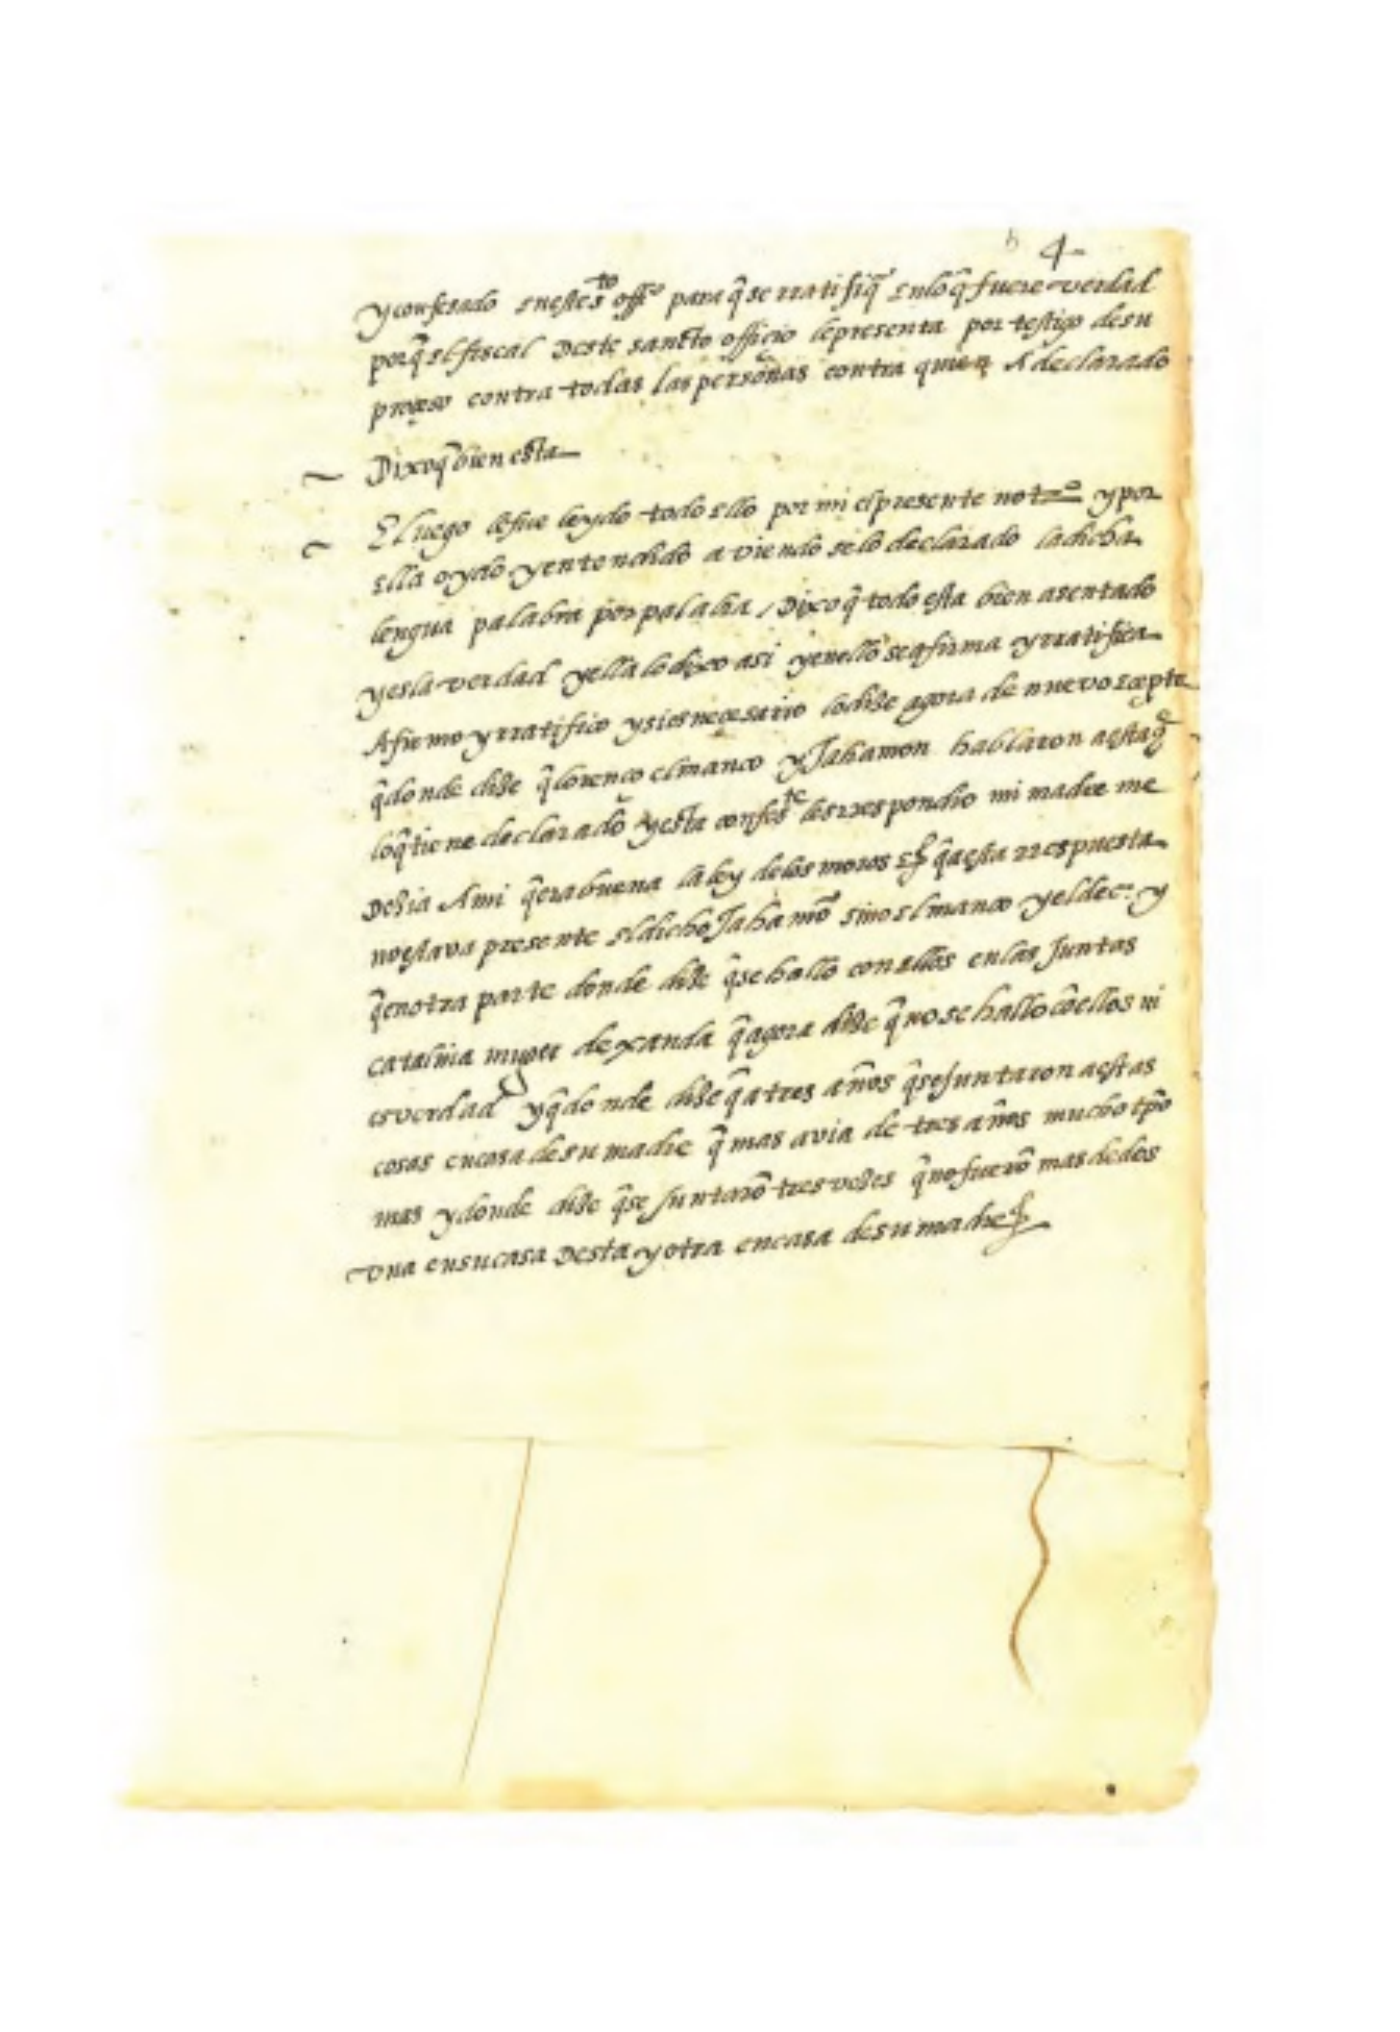 4
y confesado en este s.to offi.o para q̃ se rratifiq̃ en lo q̃ fuere verdad
porq̃ el fiscal deste sancto officio le presenta por testigo de su
proçeso contra todas las personas contra quien A declarado
Dixo q̃ bien esta
E luego le fue leydo todo ello por mi el presente not.o y por
ella oydo y entendido aviendoselo declarado la dicha
lengua palabra por palabra / Dixo q̃ todo esta bien asentado
y es la verdad y ella lo dixo asi y en ello se afirma y rratifica
Afirmo y rratifico y si es neçesario lo dize agora de nuevo eçepto
q̃ donde dize q̃ lorenço el manco y Jahamon hablaron a esta
lo q̃ tiene declarado y esta confes.te les rrespondio mi madre me
Dezia A mi q̃ era buena la ley de los moros q̃ a esta rrespuesta
no estava presente el dicho Jahamõ sino el manco y el dec: y
q̃ en otra parte donde dize q̃ se hallo con ellos en las Juntas
catalina muger de xanda q̃ agora dize q̃ no se hallo cõ ellos ni
es verdad y q̃ donde dize q̃ a tres años q̃ se juntaron a estas
cosas en casa de su madre q̃ mas avia de tres años mucho tp̃o
mas y donde dize q̃ se Juntarõ tres vezes q̃ no fuerõ mas de dos
una en su casa desta y otra en casa de su madre